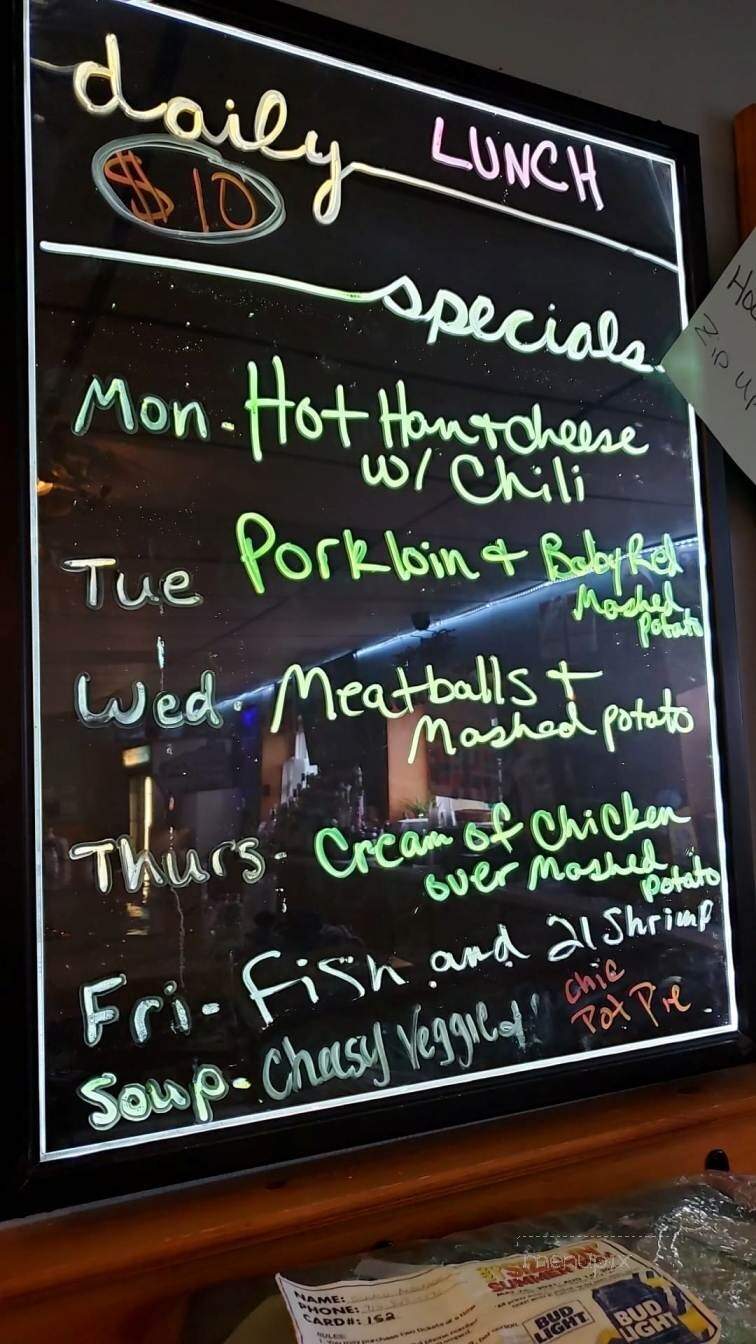 daily LUNCH
$10
specials.
Mon - Hot Ham + cheese
w/ Chili
Tue Porkloin + Baby Red
Mashed
Potato
Wed - Meatballs +
Mashed potato
Thurs - Cream of Chicken
over Mashed
Potato
Fri - Fish and 21 Shrimp
Soup - Cheasy Veggie +
Chic
Pot Pie
Zip up
menupix
NAME:
PHONE:
CARD#: 152
RULES:
SUMMER
BUD
LIGHT
BUD
LIGHT